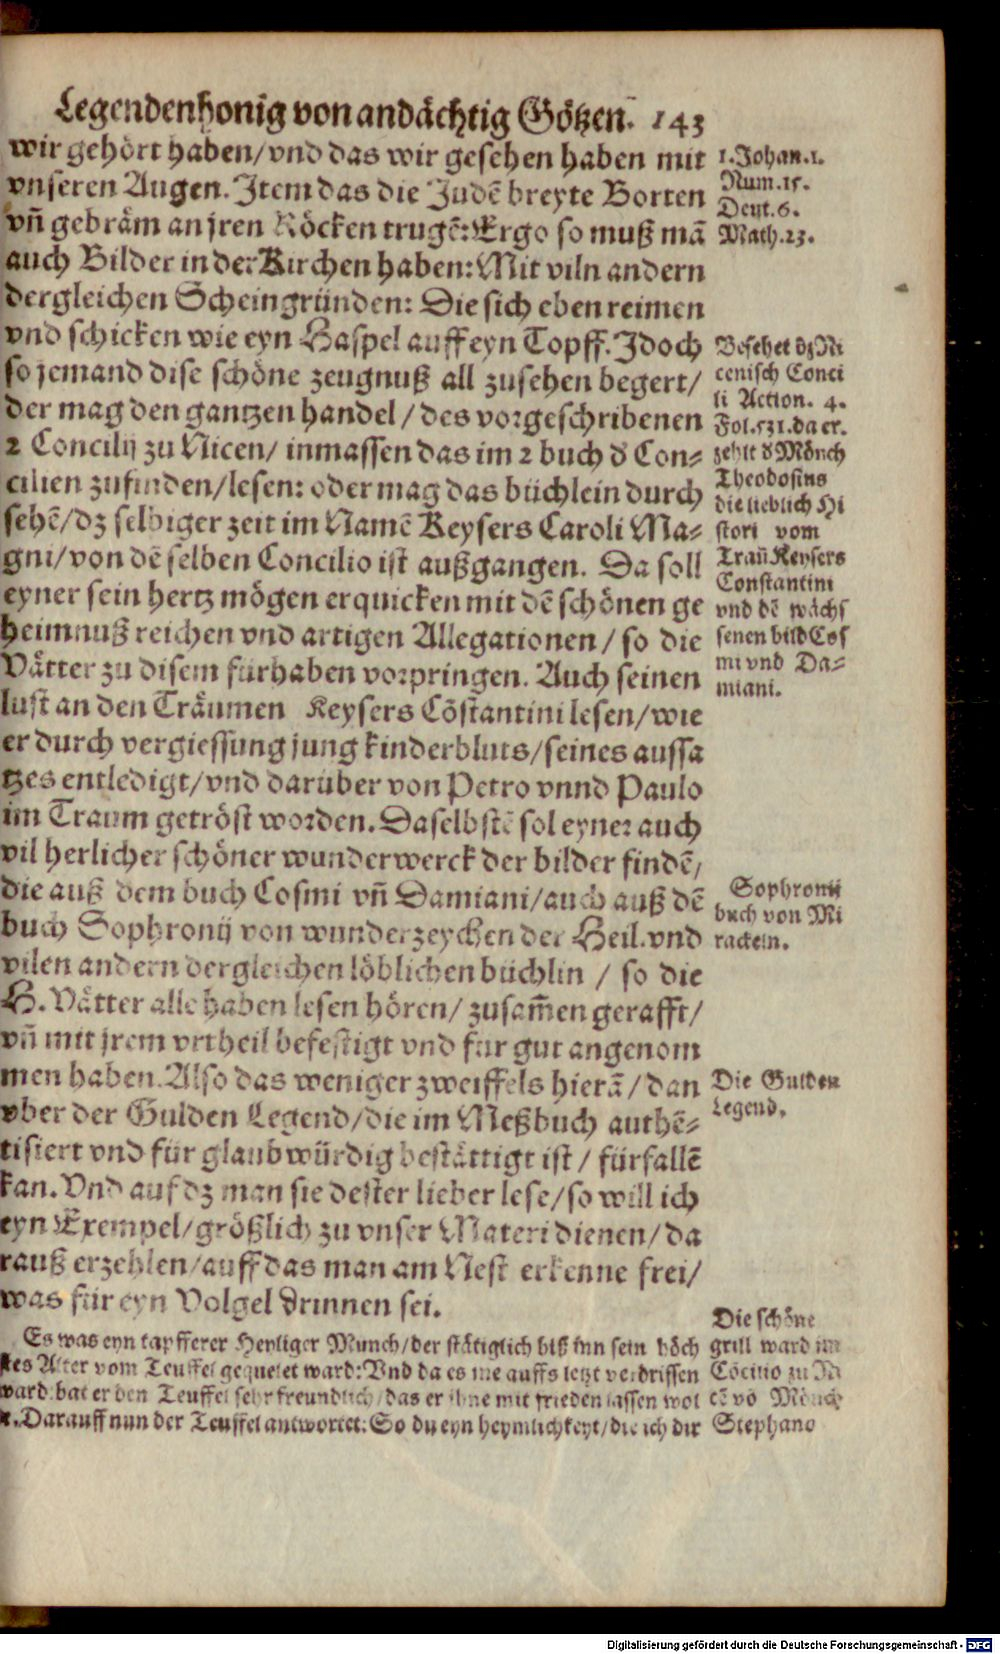 Legendenhonig von andächtig Götzen. 143
wir gehört haben/vnd das wir gesehen haben mit
vnseren Augen. Item das die Judẽ breyte Borten
vñ gebräm an jren Röcken trugẽ: Ergo so muß mã
auch Bilder in der Kirchen haben: Mit viln andern
dergleichen Scheingründen: Die sich eben reimen
vnd schicken wie eyn Haspel auff eyn Topff. Jdoch
so jemand dise schöne zeugnuß all zusehen begert/
der mag den gantzen handel/des vorgeschribenen
2 Concilij zu Nicen/ inmassen das im 2 buch d' Con-
cilien zufinden/lesen: oder mag das büchlein durch
sehẽ/dz selbiger zeit im Namẽ Keysers Caroli Ma-
gni/von dẽ selben Concilio ist außgangen. Da soll
eyner sein hertz mögen erquicken mit dẽ schönen ge
heimnuß reichen vnd artigen Allegationen/ so die
Vätter zu disem fürhaben vorpringen. Auch seinen
lust an den Träumen Keysers Cõstantini lesen/wie
er durch vergiessung jung kinderbluts/seines aussa
tzes entledigt/vnd darüber von Petro vnnd Paulo
im Traum getröst worden. Daselbstẽ sol eyner auch
vil herlicher schöner wunderwerck der bilder findẽ,
die auß dem buch Cosmi vñ Damiani/auch auß dẽ
buch Sophronij von wunderzeychen der Heil. vnd
vilen andern dergleichen löblichen büchlin / so die
H. Vätter alle haben lesen hören/ zusam̃en gerafft/
vñ mit jrem vrtheil befestigt vnd für gut angenom
men haben. Also das weniger zweiffels hierã/dan
vber der Gulden Legend/die im Meßbuch authẽ-
tisiert vnd für glaubwürdig bestättigt ist/ fürfallẽ
kan. Vnd auf dz man sie dester lieber lese/so will ich
eyn Exempel/größlich zu vnser Materi dienen/da
rauß erzehlen/auff das man am Nest erkenne frei/
was für eyn Volgel drinnen sei.
Es was eyn tapfferer Heyliger Munch/der stätiglich biß inn sein höch
stes Alter vom Teuffel gequelet ward: Vnd da es jme auffs letzt verdrissen
ward: bat er den Teuffel sehr freundlich/das er ihne mit frieden lassen wol
t. Darauff nun der Teuffel antwortet: So du eyn heymlichkeyt/die ich dir
1. Johan. 1.
Num. 15.
Deut. 6.
Math. 23.
Besehet dz Ni
cenisch Conci
li Action. 4.
Fol. 531. da er.
zehlt d' Mönch
Theodosius
die lieblich Hi
stori vom
Trañ Keysers
Constantini
vnd dẽ wächs
senen bild Cos
mi vnd Da-
miani.
Sophronij
buch von Mi
rackeln.
Die Gulden
Legend.
Die schöne
grill ward im
Cõcilio zu Ni
cẽ võ Mönch
Stephano
Digitalisierung gefördert durch die Deutsche Forschungsgemeinschaft - DFG